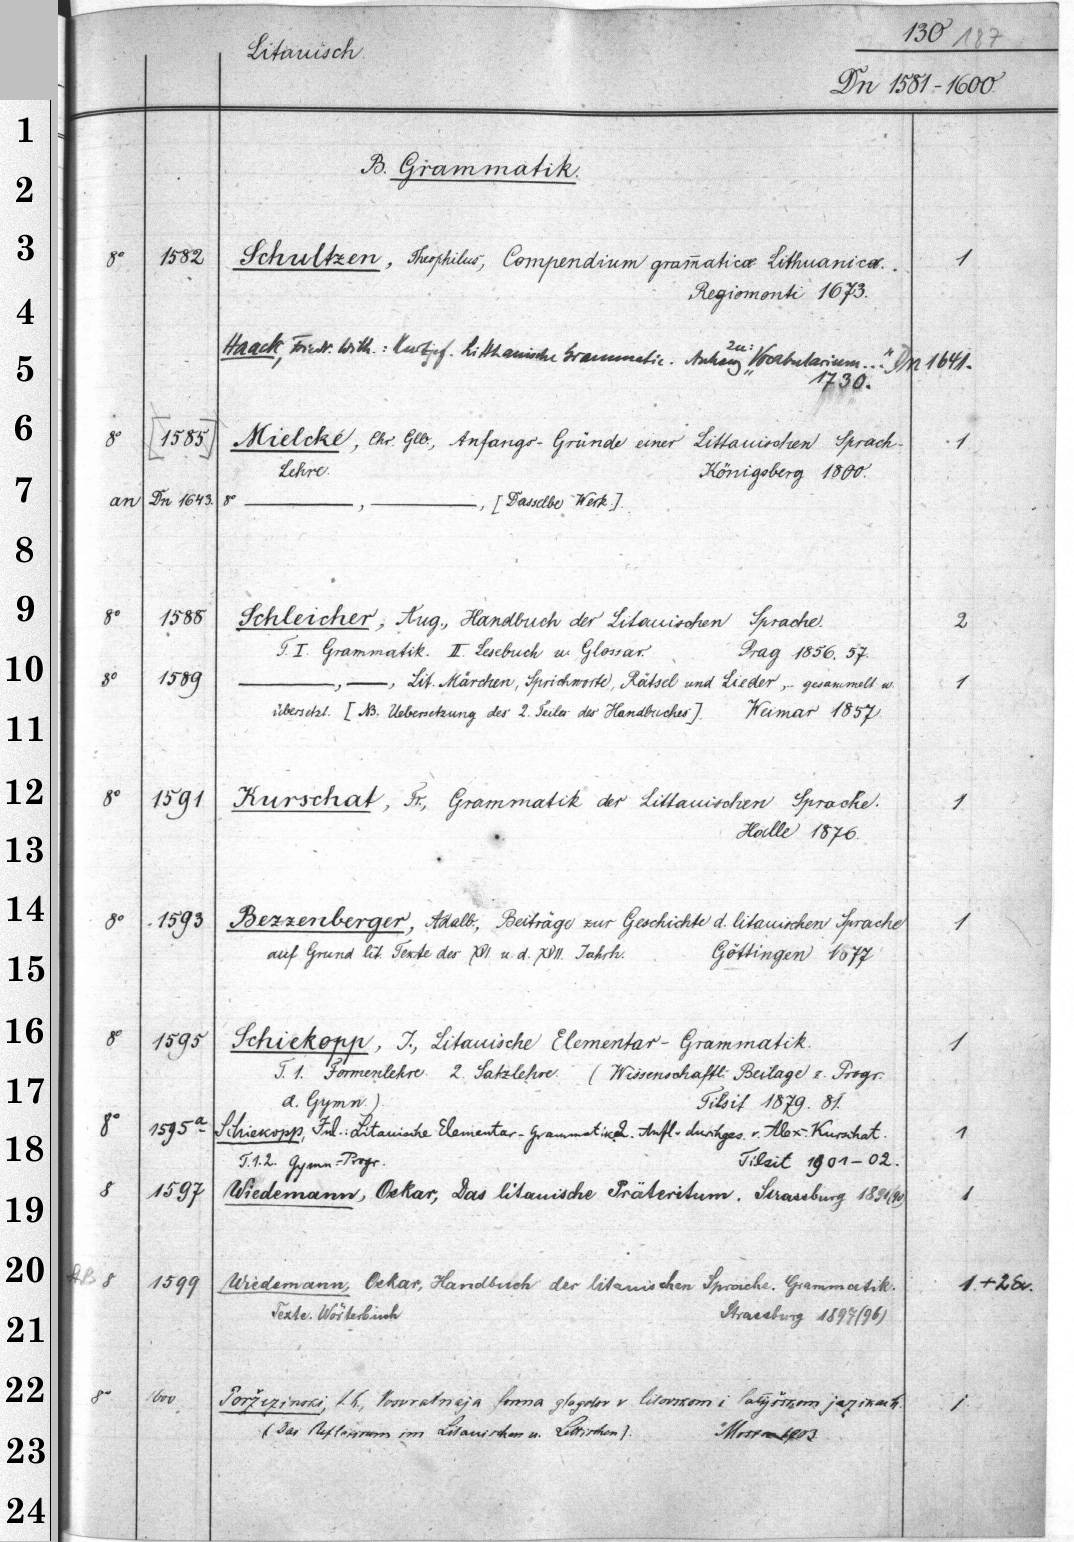 Litauisch
130 187
Dn 1581-1600
1
2
3
4
5
6
7
8
9
10
11
12
13
14
15
16
17
18
19
20
21
22
23
24
B. Grammatik.
8° 1582 Schultzen, Theophilus, Compendium gram̄aticæ Lithuanicæ. 1
Regiomonti 1673.
Haack, Friedr. Wilh.: Kurtzgef. Litthauische Grammatic. Anhang zu: "Vocabularium..." Dn 1641.
1730.
8° [1585] Mielcke, Chr. Glb., Anfangs-Gründe einer Littauischen Sprach- 1
Lehre. Königsberg 1800.
an Dn 1643. 8° ———, ———, [Dasselbe Werk.]
8° 1588 Schleicher, Aug., Handbuch der Litauischen Sprache. 2
T. I. Grammatik. II. Lesebuch u. Glossar. Prag 1856. 57.
8° 1589 ———, ——, Lit. Märchen, Sprichworte, Rätsel und Lieder, gesammelt u. 1
übersetzt. [NB. Uebersetzung des 2. Teiles des Handbuches]. Weimar 1857
8° 1591 Kurschat, Fr., Grammatik der Littauischen Sprache. 1
Halle 1876.
8° 1593 Bezzenberger, Adalb., Beiträge zur Geschichte d. litauischen Sprache 1
auf Grund lit. Texte des XVI. u. d. XVII. Jahrh. Göttingen 1877
8° 1595 Schiekopp, J., Litauische Elementar-Grammatik. 1
T. 1. Formenlehre. 2. Satzlehre. (Wissenschaftl. Beilage z. Progr.
d. Gymn.) Tilsit 1879. 81.
8° 1595a Schiekopp, Jul.: Litauische Elementar-Grammatik 2. Aufl. durchges. v. Alex. Kurschat. 1
T.1.2. Gymn.-Progr. Tilsit 1901-02.
8 1597 Wiedemann, Oskar, Das litauische Präteritum. Strassburg 1891(90) 1
8 1599 Wiedemann, Oskar, Handbuch der litauischen Sprache. Grammatik. 1+2.Ex.
Texte. Wörterbuch Strassburg 1897(96)
8° 1600 Poržezinski, Vozvratnaja forma glagolov v litovskom i latyšskom jazykach. 1
(Das Reflexivum im Litauischen u. Lettischen). Moskva 1903